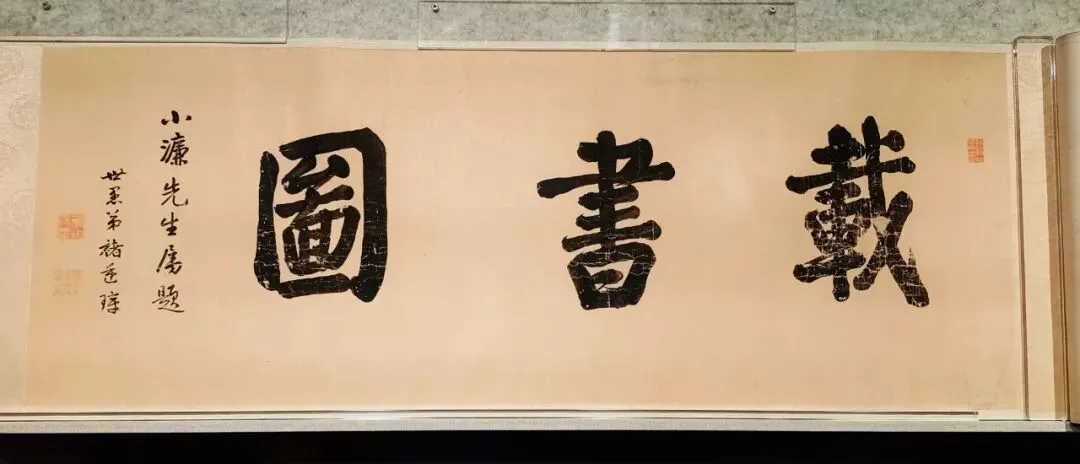 載書圖
小濂先生屬題
世愚弟褚蓮璋